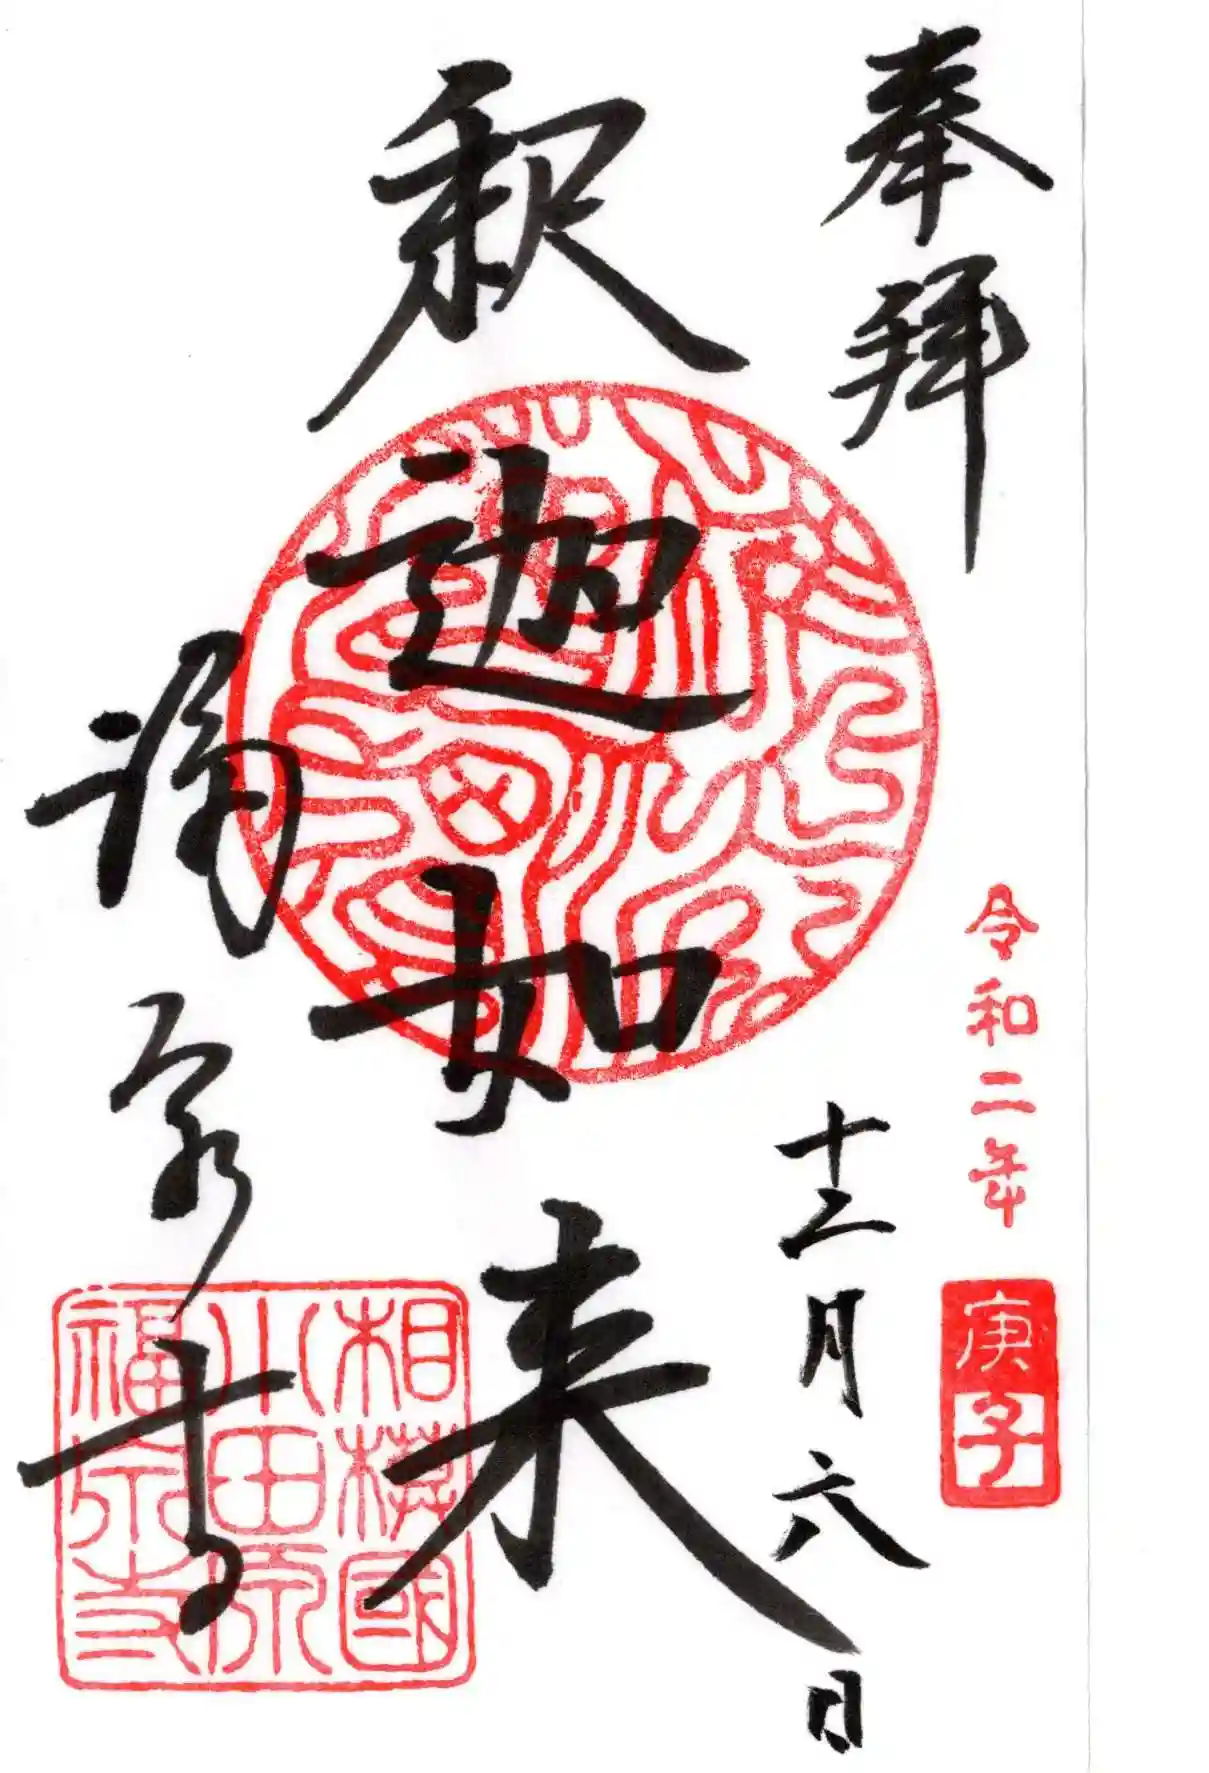 奉拝
令和二年
庚子
十二月六日
釈迦如来
福泉寺
相模國
小田原
福泉寺